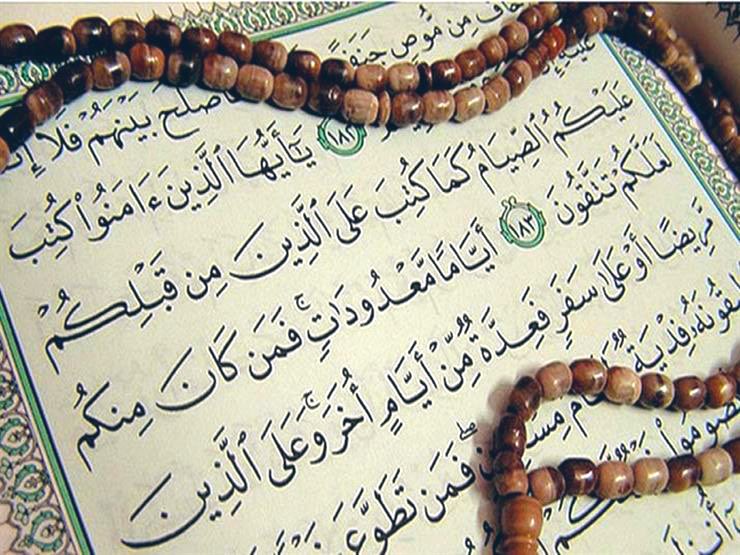 مِن مُّوصٍ
بَيْنَهُمْ فَلَا
١٨٢ يَٰٓأَيُّهَا ٱلَّذِينَ ءَامَنُوا۟ كُتِبَ
عَلَيْكُمُ ٱلصِّيَامُ كَمَا كُتِبَ عَلَى ٱلَّذِينَ مِن قَبْلِكُمْ
لَعَلَّكُمْ تَتَّقُونَ ١٨٣ أَيَّامًا مَّعْدُودَٰتٍ ۚ فَمَن كَانَ مِنكُم
مَّرِيضًا أَوْ عَلَىٰ سَفَرٍ فَعِدَّةٌ مِّنْ أَيَّامٍ أُخَرَ ۚ وَعَلَى ٱلَّذِينَ
فِدْيَةٌ فَمَن تَطَوَّعَ